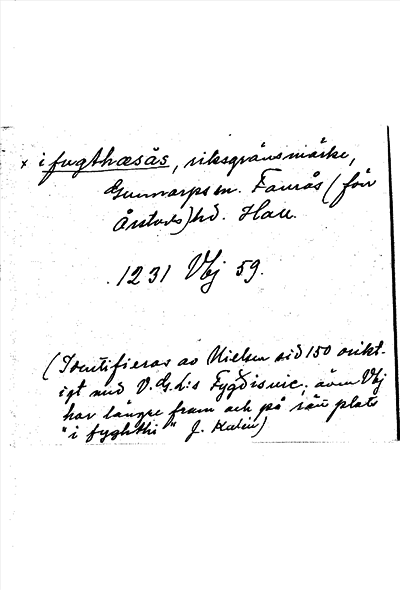 x i fugthæsås, riksgränsmärke,
Gunnarps sn. Faurås (förr
Årstads) hd. Hall.
1231 Vbj 59.
(Identifieras av Nielsen sid 150 orikt-
igt med V.G.L:s Fygðisvic, även Vbj
har längre fram och på rätt plats
"i fyghthi" J. Kalén)